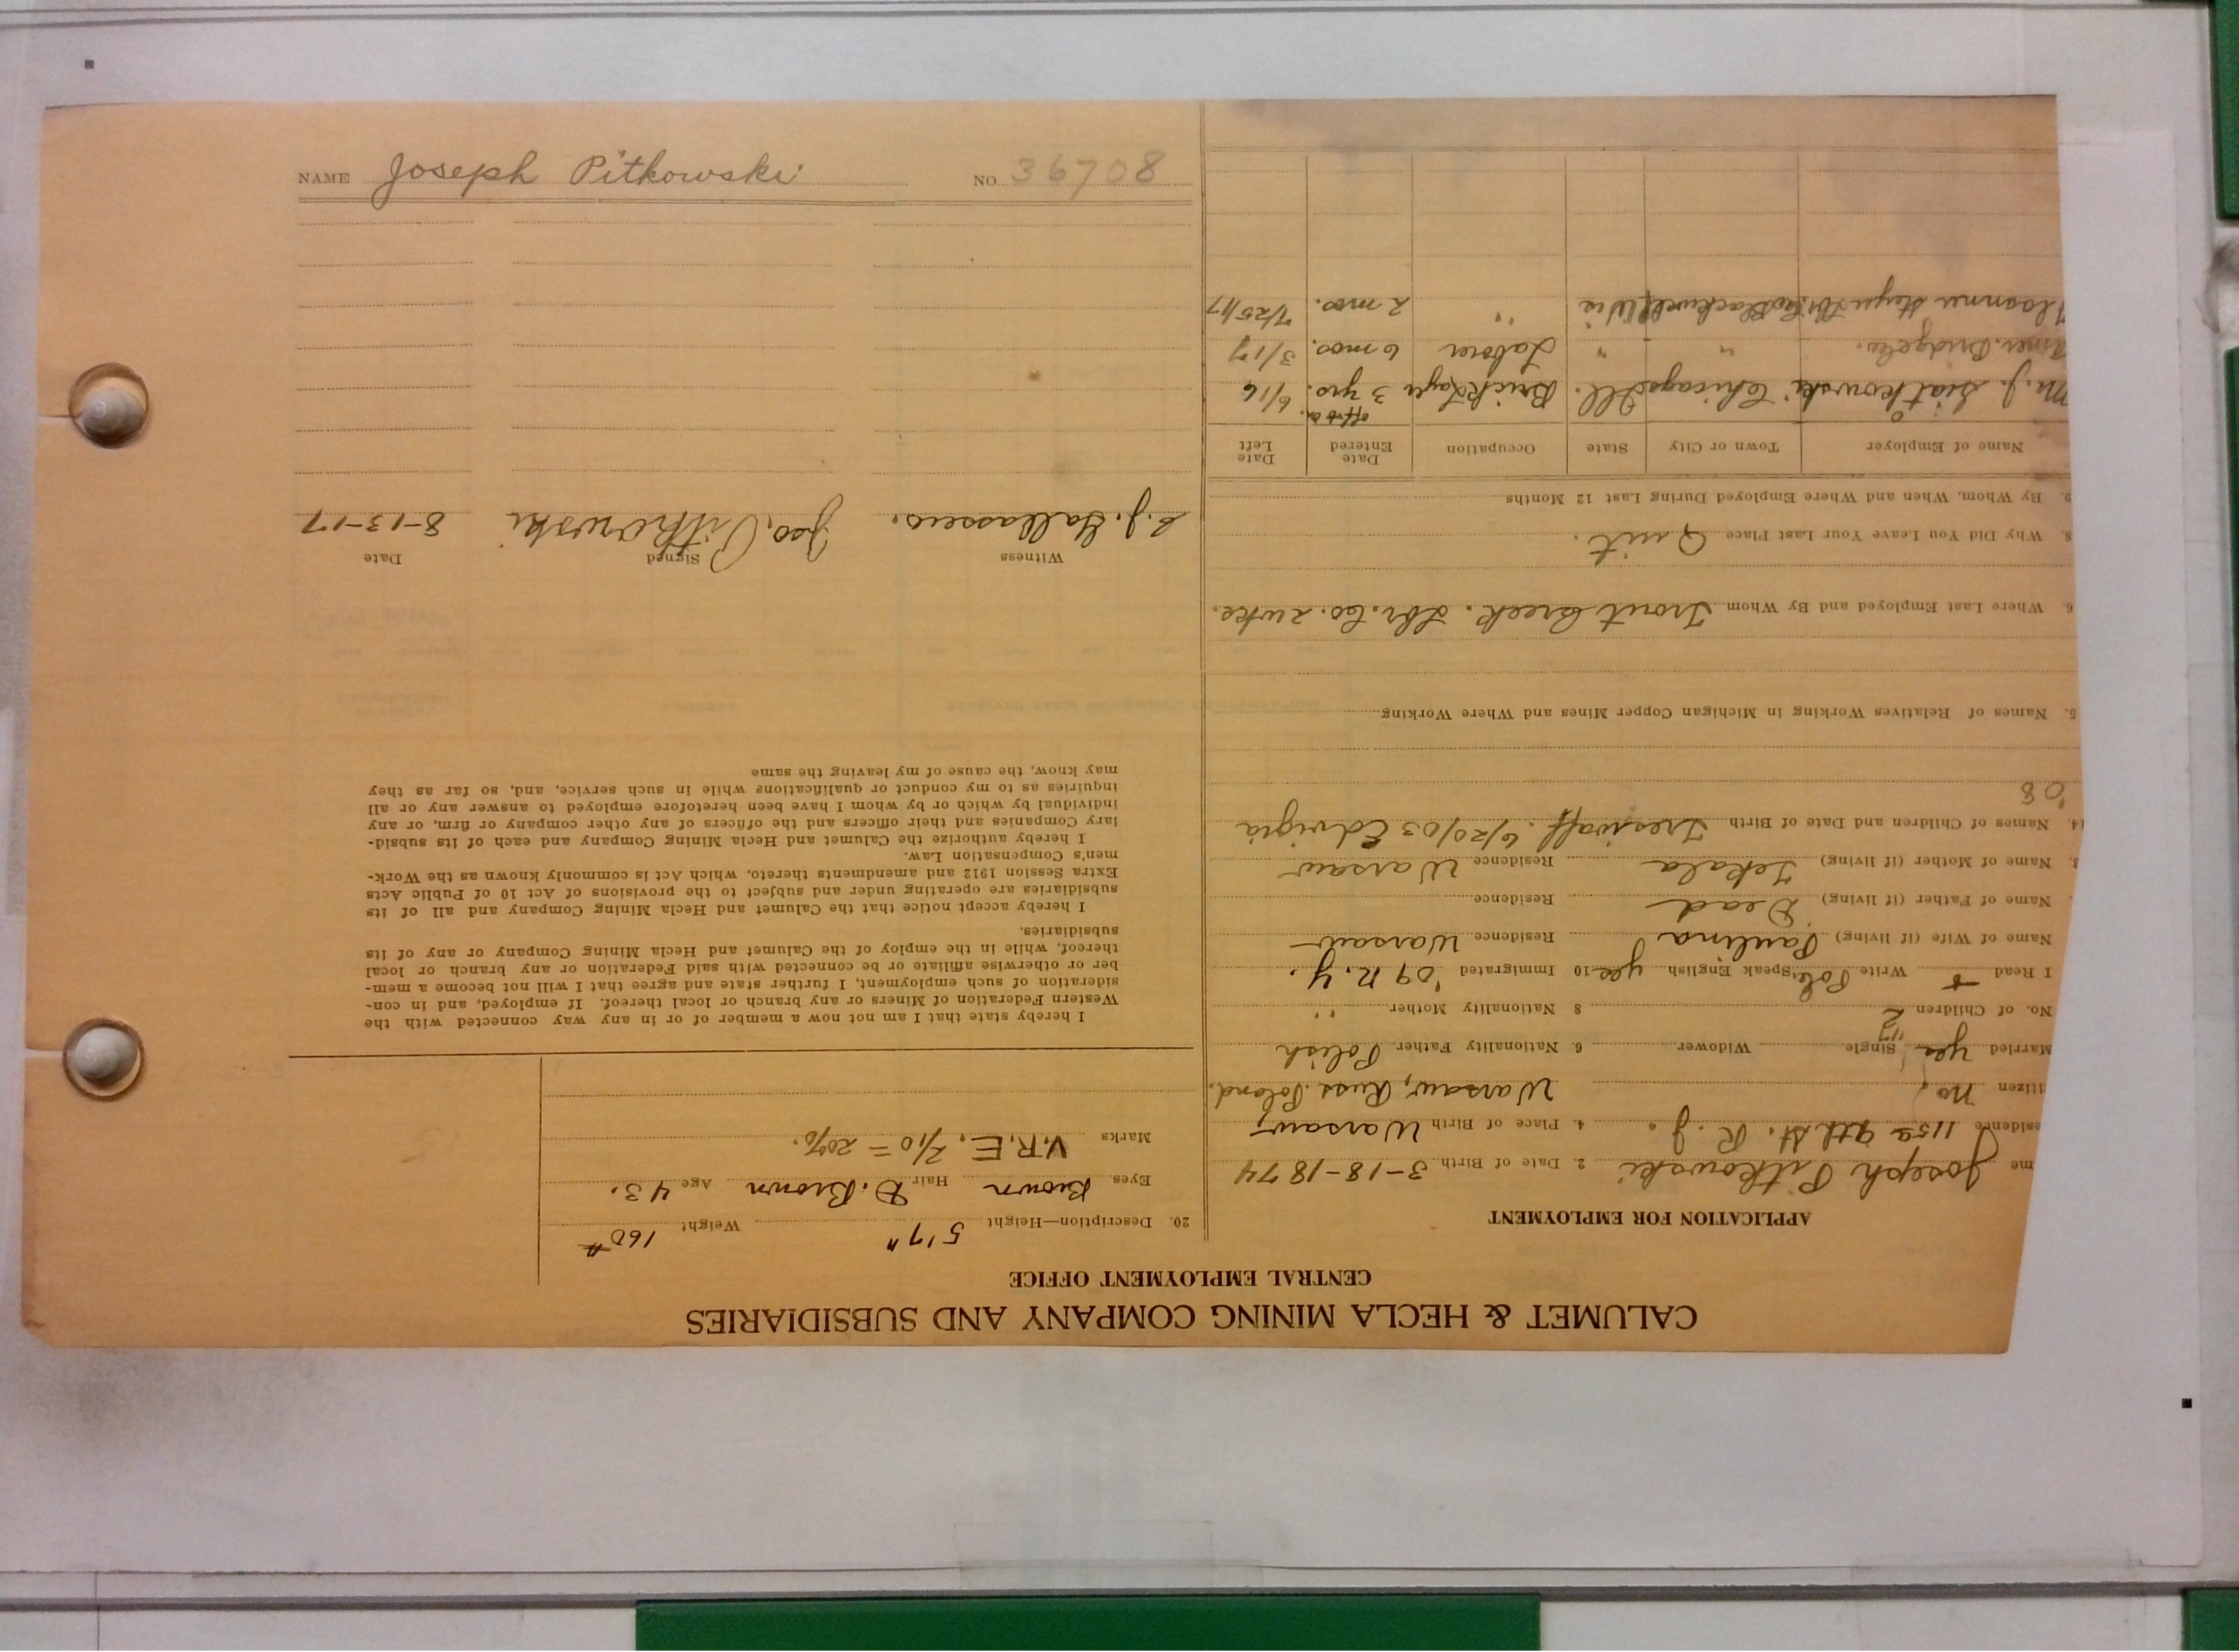 CALUMET & HECLA MINING COMPANY AND SUBSIDIARIES
CENTRAL EMPLOYMENT OFFICE
APPLICATION FOR EMPLOYMENT
me Joseph Pitkowski 2. Date of Birth 3-18-1874
esidence 1152 9th St. R. J. 4. Place of Birth Warsaw,
itizen no. Warsaw, Russ. Poland.
Married yes Single Widower 6. Nationality Father Polish
No. of Children 2 8 Nationality Mother " "
I Read + Write Pol. Speak English yes 10 Immigrated '09 N.Y.
Name of Wife (if living) Paulina Residence Warsaw
Name of Father (if living) Dead Residence
3. Name of Mother (if living) Tekala Residence Warsaw
14. Names of Children and Date of Birth 6/20/03 Edvigia
'08
5. Names of Relatives Working in Michigan Copper Mines and Where Working
6. Where Last Employed and By Whom Trout Creek. Lbr. Co. 2 wks.
8. Why Did You Leave Your Last Place Quit.
9. By Whom, When and Where Employed During Last 12 Months
Name of Employer Town or City State Occupation Date Entered Date Left
M. J. Siatkowski Chicago Ill. Brick Layer off & on. 3 yrs. 6/16
Amer. Bridge Co. " " Laborer 6 mos. 3/17
Lbr. Co. Blackwell Wis " 2 mos. 7/25/17
20. Description—Height 5'7" Weight 160#
Eyes Brown Hair D. Brown Age 43.
Marks V.R.E. 2/10 = 20%.
I hereby state that I am not now a member of or in any way connected with the
Western Federation of Miners or any branch or local thereof. If employed, and in con-
sideration of such employment, I further state and agree that I will not become a mem-
ber or otherwise affiliate or be connected with said Federation or any branch or local
thereof, while in the employ of the Calumet and Hecla Mining Company or any of its
subsidiaries.
I hereby accept notice that the Calumet and Hecla Mining Company and all of its
subsidiaries are operating under and subject to the provisions of Act 10 of Public Acts
Extra Session 1912 and amendments thereto, which Act is commonly known as the Work-
men's Compensation Law.
I hereby authorize the Calumet and Hecla Mining Company and each of its subsid-
iary Companies and their officers and the officers of any other company or firm, or any
individual by which or by whom I have been heretofore employed to answer any or all
inquiries as to my conduct or qualifications while in such service, and, so far as they
may know, the cause of my leaving the same
Witness Signed Date
Jos. Pitkowski 8-13-17
NAME Joseph Pitkowski NO 36708